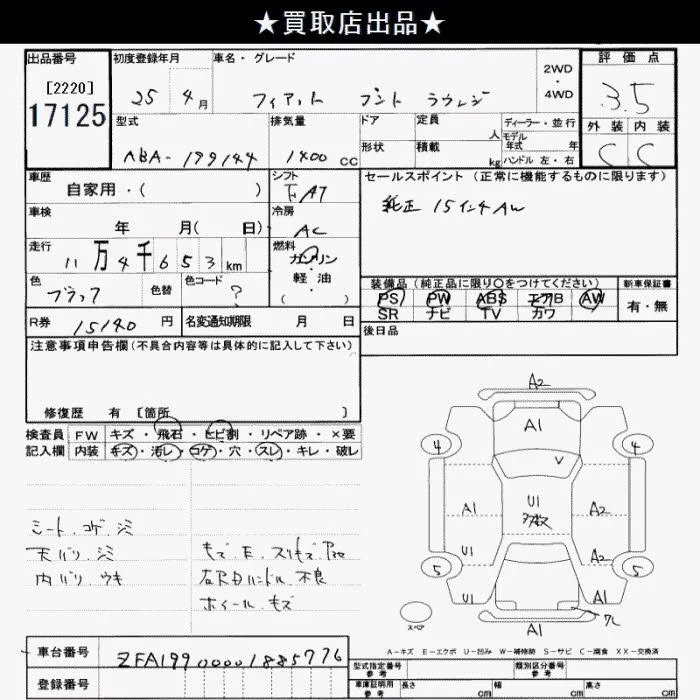 ★買取店出品★
出品番号 初度登録年月 車名・グレード 2WD・4WD 評価点
[2220]
17125 25年 4月 フィアット プント ラウレジ 3.5
型式 排気量 ドア 定員 人 ディーラー・並行 外装 内装
ABA-199144 1400cc 形状 積載 kg モデル年式 年 ハンドル 左・右 C C
車歴 シフト セールスポイント(正常に機能するものに限ります)
自家用・( ) FAT 純正 15インチAW
車検 年 月(日) 冷房 AC
走行 11万4千653km 燃料 ガソリン 軽油 ( )
色 ブラック 色替 色コード ?
装備品(純正品に限り○をつけてください) 新車保証書
PS PW ABS エアB AW 有・無
SR ナビ TV カワ
R券 15140円 名変通知期限 月 日 後日品
注意事項申告欄(不具合内容等は具体的に記入して下さい)
修復歴 有 [箇所 ]
検査員 FW キズ・飛石・ヒビ割・リペア跡・×要
記入欄 内装 キズ・汚レ・コゲ・穴・スレ・キレ・破レ
シート.コゲ.シミ
天バリ.シミ
内バリ.ウキ
キズ.E.スリキズ
右Rドアハンドル.不良
ホイール.キズ
A2
A1
4 4
V
A1 U1 A2
U1 A2
5 5
U1 A1
スペア
A1
A-キズ E-エクボ U-凹み W-補修跡 S-サビ C-腐食 XX-交換済
車台番号 ZFA19900001885776
登録番号
型式指定番号 参考 類別区分番号 参考
車庫証明用 参考 長さ cm 幅 cm 高さ cm